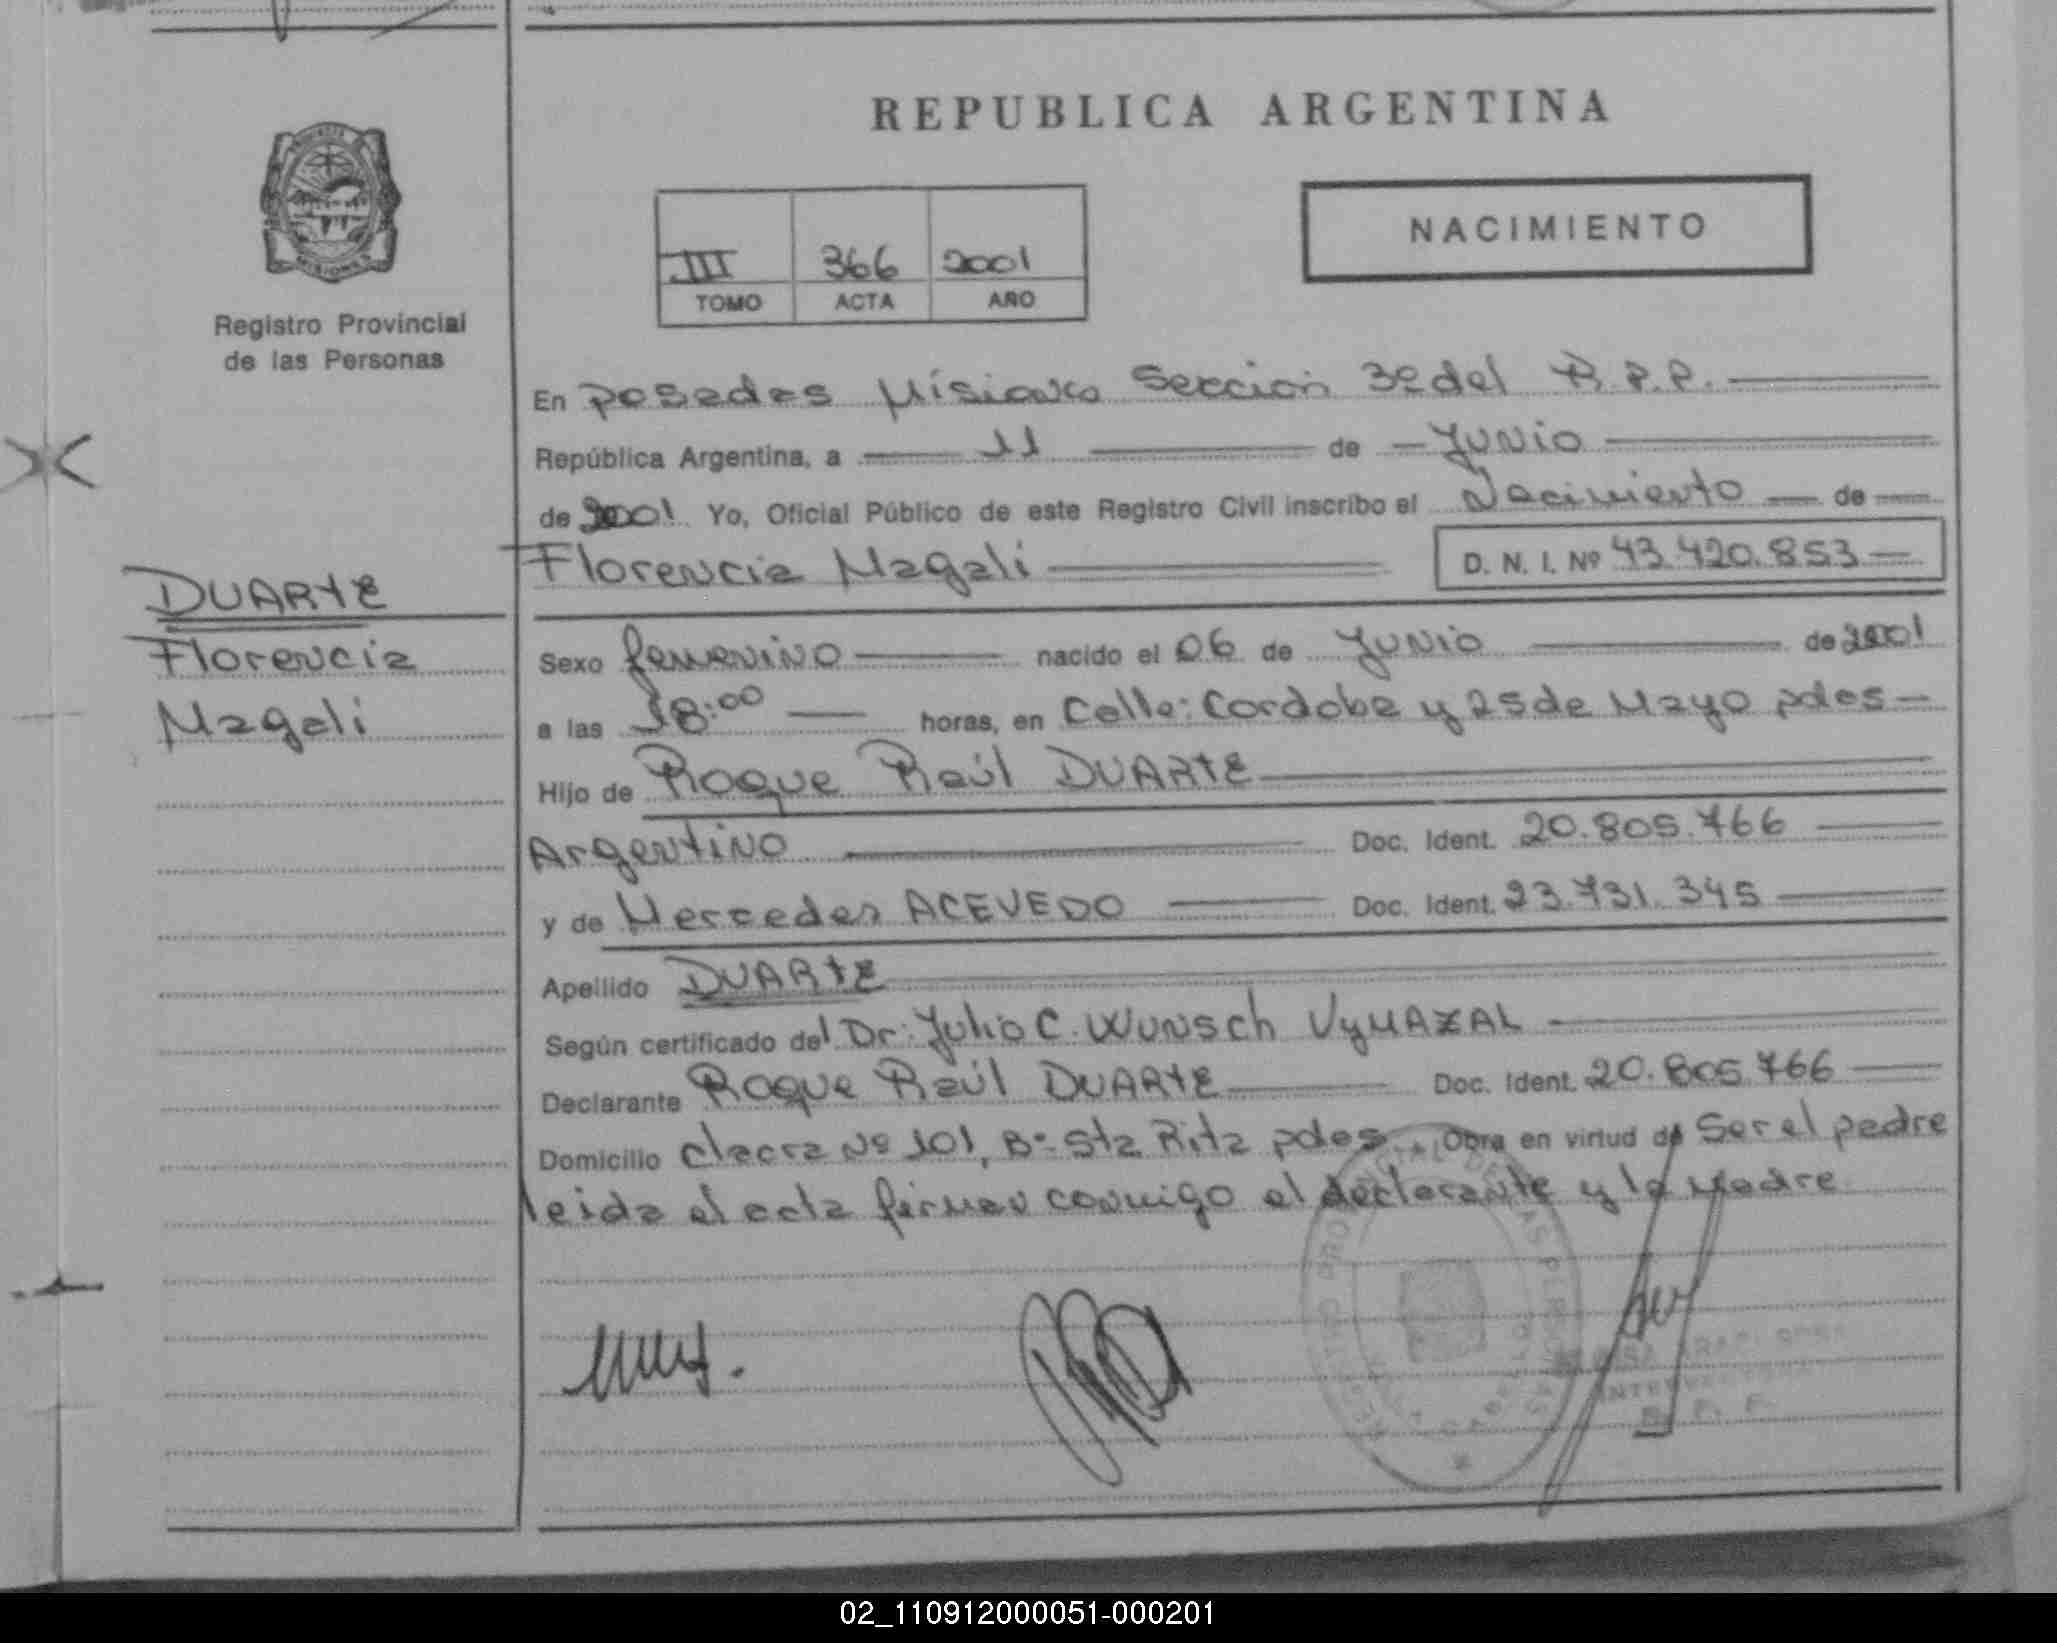 REPUBLICA ARGENTINA
MISIONES
Registro Provincial
de las Personas
III 366 2001
TOMO ACTA AÑO
NACIMIENTO
En Posadas Misiones Sección 3º del R.P.P.
República Argentina, a 11 de Junio
de 2001 Yo, Oficial Público de este Registro Civil inscribo el Nacimiento de
Florencia Magali
D. N. I. Nº 43.420.853
DUARTE
Florencia
Magali
Sexo femenino nacido el 06 de Junio de 2001
a las 18:00 horas, en Calle: Cordoba y 25 de Mayo pdas
Hijo de Roque Raúl DUARTE
Argentino Doc. Ident. 20.805.766
y de Mercedes ACEVEDO Doc. Ident. 23.731.345
Apellido DUARTE
Según certificado del Dr: Julio C. WUNSch VyMAZAL
Declarante Roque Raúl DUARTE Doc. Ident. 20.805.766
Domicilio chacra Nº 101, Bº Sta Rita pdas. Obra en virtud de Ser el padre
leida el acta firman conmigo el declarante y la Madre
02_110912000051-000201